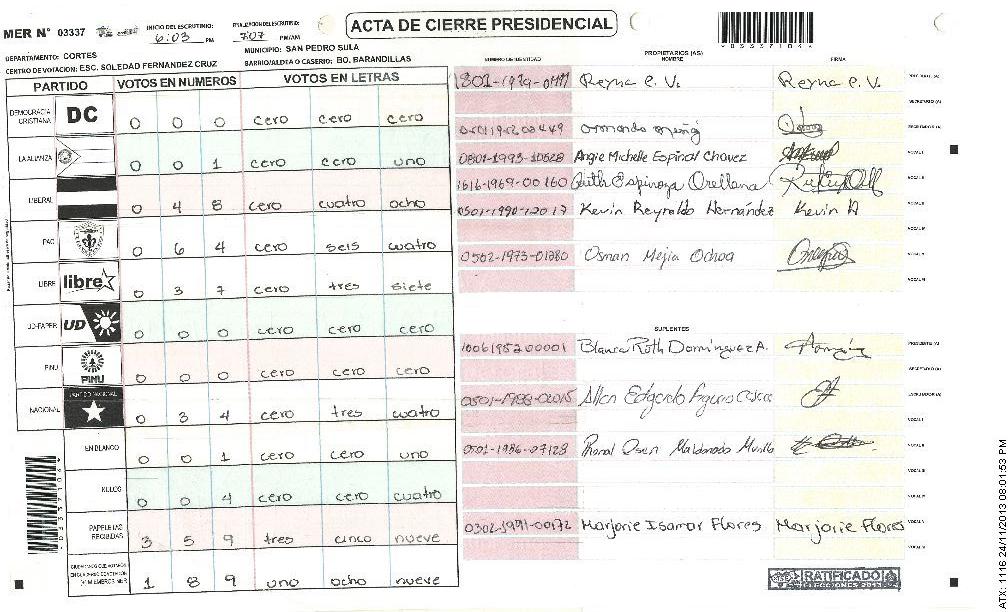 MER N° 03337
INICIO DEL ESCRUTINIO: 6:03 PM
FINALIZACION DEL ESCRUTINIO: 7:07 PM/AM
ACTA DE CIERRE PRESIDENCIAL
DEPARTAMENTO: CORTES
MUNICIPIO: SAN PEDRO SULA
CENTRO DE VOTACION: ESC. SOLEDAD FERNANDEZ CRUZ
BARRIO/ALDEA O CASERIO: BO. BARANDILLAS
PARTIDO VOTOS EN NUMEROS VOTOS EN LETRAS
DEMOCRACIA CRISTIANA DC 0 0 0 cero cero cero
LA ALIANZA 0 0 1 cero cero uno
LIBERAL 0 4 8 cero cuatro ocho
PAC 0 6 4 cero seis cuatro
LIBRE libre 0 3 7 cero tres siete
UD-FAPER UD 0 0 0 cero cero cero
PINU PINU 0 0 0 cero cero cero
NACIONAL PARTIDO NACIONAL 0 3 4 cero tres cuatro
EN BLANCO 0 0 1 cero cero uno
NULOS 0 0 4 cero cero cuatro
PAPELETAS RECIBIDAS 3 5 9 tres cinco nueve
1 8 9 uno ocho nueve
PROPIETARIOS (AS)
NUMERO DE IDENTIDAD NOMBRE FIRMA
Reyna C. V. Reyna C. V.
SECRETARIO (A)
Armando
0801-1993-10628 Angie Michelle Espinal Chavez
1616-1969-00160 Ruth Espinoza Orellana
0501-1990-12017 Kevin Reynaldo Hernández Kevin H
0502-1973-01380 Osman Mejia Ochoa
SUPLENTES
1006198200001 Blanca Roth Domínguez A.
SECRETARIO (A)
Allan Edgardo
0501-1986-07128 Ronal Osen Maldonado Murillo
0302-1991-00172 Marjorie Isamar Flores Marjorie Flores
RATIFICADO
ELECCIONES 2013
ATX: 1116 24/11/2013 08:01:53 PM